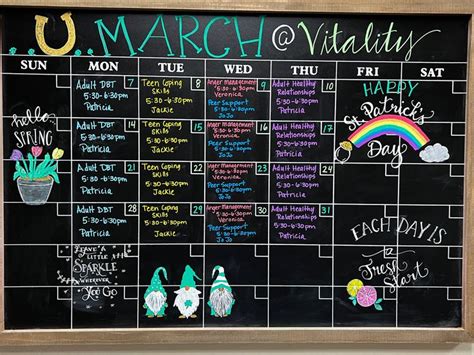 MARCH @ Vitality
SUN MON TUE WED THU FRI SAT
Adult DBT 7
5:30-6:30pm
Patricia
Teen Coping 8
Skills
5:30-6:30pm
Jackie
Anger Management 9
5:30-6:30pm
Veronica
Peer Support
5:30-6:30
JoJo
Adult Healthy 10
Relationships
5:30-6:30pm
Patricia
HAPPY
St. Patrick's
DAY
hello
SPRING
Adult DBT 14
5:30-6:30pm
Patricia
Teen Coping 15
Skills
5:30-6:30pm
Jackie
Anger Management 16
5:30-6:30pm
Veronica
Peer Support
5:30-6:30
JoJo
Adult Healthy 17
Relationships
5:30-6:30pm
Patricia
Adult DBT 21
5:30-6:30pm
Patricia
Teen Coping 22
Skills
5:30-6:30pm
Jackie
Anger Management 23
5:30-6:30pm
Veronica
Peer Support
5:30-6:30
JoJo
Adult Healthy 24
Relationships
5:30-6:30pm
Patricia
Adult DBT 28
5:30-6:30pm
Patricia
Teen Coping 29
Skills
5:30-6:30pm
Jackie
Anger Management 30
5:30-6:30pm
Veronica
Peer Support
5:30-6:30
JoJo
Adult Healthy 31
Relationships
5:30-6:30pm
Patricia
EACH DAY IS
a
Fresh
Start
LEAVE A
little
SPARKLE
WHEREVER
YOU GO